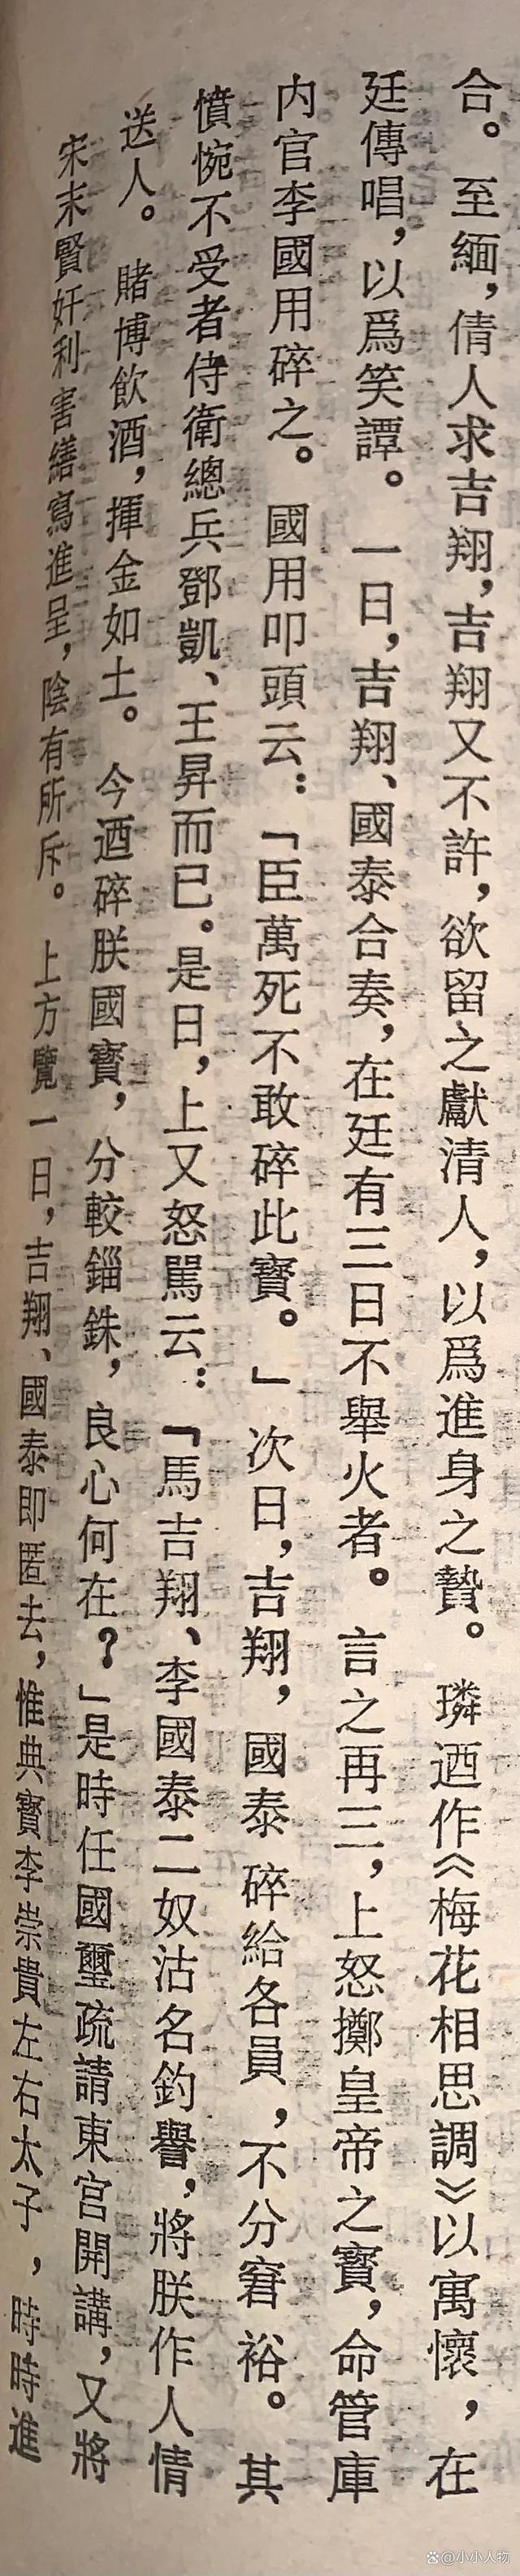 合。至緬，倩人求吉翔，吉翔又不許，欲留之獻清人，以爲進身之贄。璘迺作《梅花相思調》以寓懷，在
廷傳唱，以爲笑譚。一日，吉翔、國泰合奏，在廷有三日不舉火者。言之再三，上怒擲皇帝之寶，命管庫
内官李國用碎之。國用叩頭云：「臣萬死不敢碎此寶。」次日，吉翔，國泰碎給各員，不分窘裕。其
憤惋不受者侍衛總兵鄧凱、王昇而已。是日，上又怒罵云：「馬吉翔、李國泰二奴沽名釣譽，將朕作人情
送人。賭博飲酒，揮金如土。今迺碎朕國寶，分較錙銖，良心何在？」是時任國璽疏請東宮開講，又將
宋末賢奸利害繕寫進呈，陰有所斥。上方覽一日，吉翔、國泰即匿去，惟典寶李崇貴左右太子，時時進
@小小人物